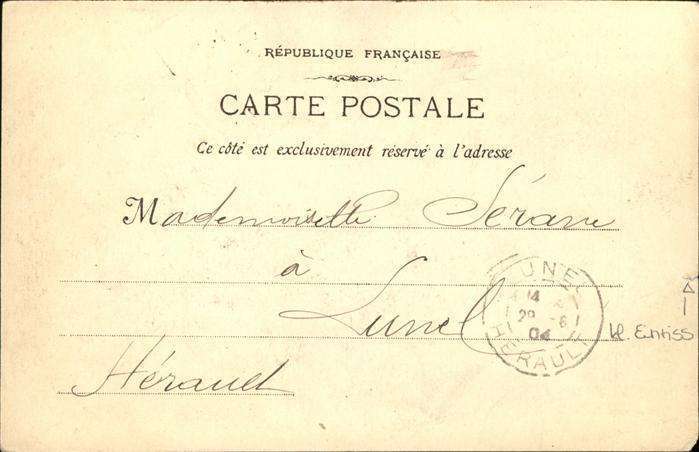 RÉPUBLIQUE FRANÇAISE
CARTE POSTALE
Ce côté est exclusivement réservé à l'adresse
Mademoiselle Sérane
à
Lunel
Hérault
LUNEL
14
29 -6
04
HÉRAULT
kl. Entiss